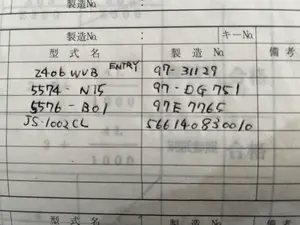 製造No.
製造No. キーNo.
型式名 製造No. 備考
2406 WVB ENTRY 97-31129
5574-N15 97-DG751
5576-B01 97E7765
JS-1002CL 566140830010
型式名 製造No. 備考